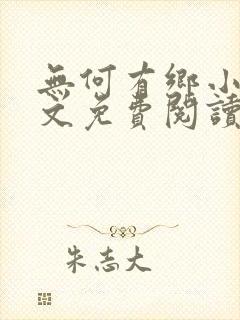 無何有鄉小
文免費閱讀
朱志大